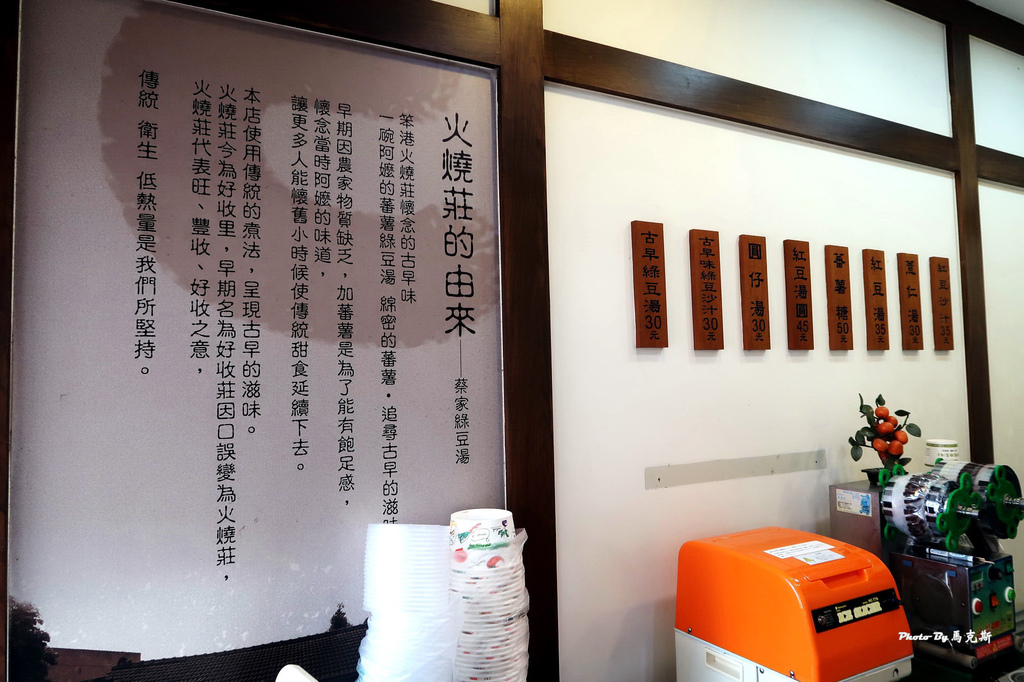 火燒莊的由來——蔡家綠豆湯
笨港火燒莊懷念的古早味
一碗阿嬤的蕃薯綠豆湯 綿密的蕃薯・追尋古早的滋味
早期因農家物質缺乏，加蕃薯是為了能有飽足感，
懷念當時阿嬤的味道，
讓更多人能懷舊小時候使傳統甜食延續下去。
本店使用傳統的煮法，呈現古早的滋味。
火燒莊今為好收里，早期名為好收莊因口誤變為火燒莊，
火燒莊代表旺、豐收、好收之意，
傳統 衛生 低熱量是我們所堅持。
古早綠豆湯30元
古早味綠豆沙汁30元
圓仔湯30元
紅豆湯圓45元
蕃薯糖50元
紅豆湯35元
薏仁湯30元
紅豆沙汁35元
Photo By 馬克斯